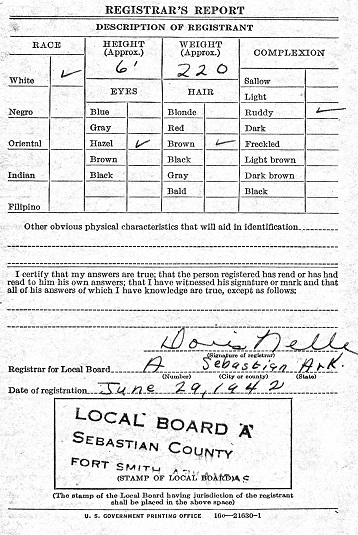 REGISTRAR'S REPORT
DESCRIPTION OF REGISTRANT
RACE HEIGHT (Approx.) WEIGHT (Approx.) COMPLEXION
White ✓ 6' 220
EYES HAIR
Sallow
Light
Negro Blue Blonde Ruddy ✓
Gray Red Dark
Oriental Hazel ✓ Brown ✓ Freckled
Brown Black Light brown
Indian Black Gray Dark brown
Bald Black
Filipino
Other obvious physical characteristics that will aid in identification
I certify that my answers are true; that the person registered has read or has had
read to him his own answers; that I have witnessed his signature or mark and that
all of his answers of which I have knowledge are true, except as follows:
Doris Nelle
(Signature of registrar)
Registrar for Local Board A Sebastian Ark.
(Number) (City or county) (State)
Date of registration June 29, 1942
LOCAL BOARD "A"
SEBASTIAN COUNTY
FORT SMITH
(STAMP OF LOCAL BOARD)
(The stamp of the Local Board having jurisdiction of the registrant
shall be placed in the above space)
U. S. GOVERNMENT PRINTING OFFICE 16—21630-1